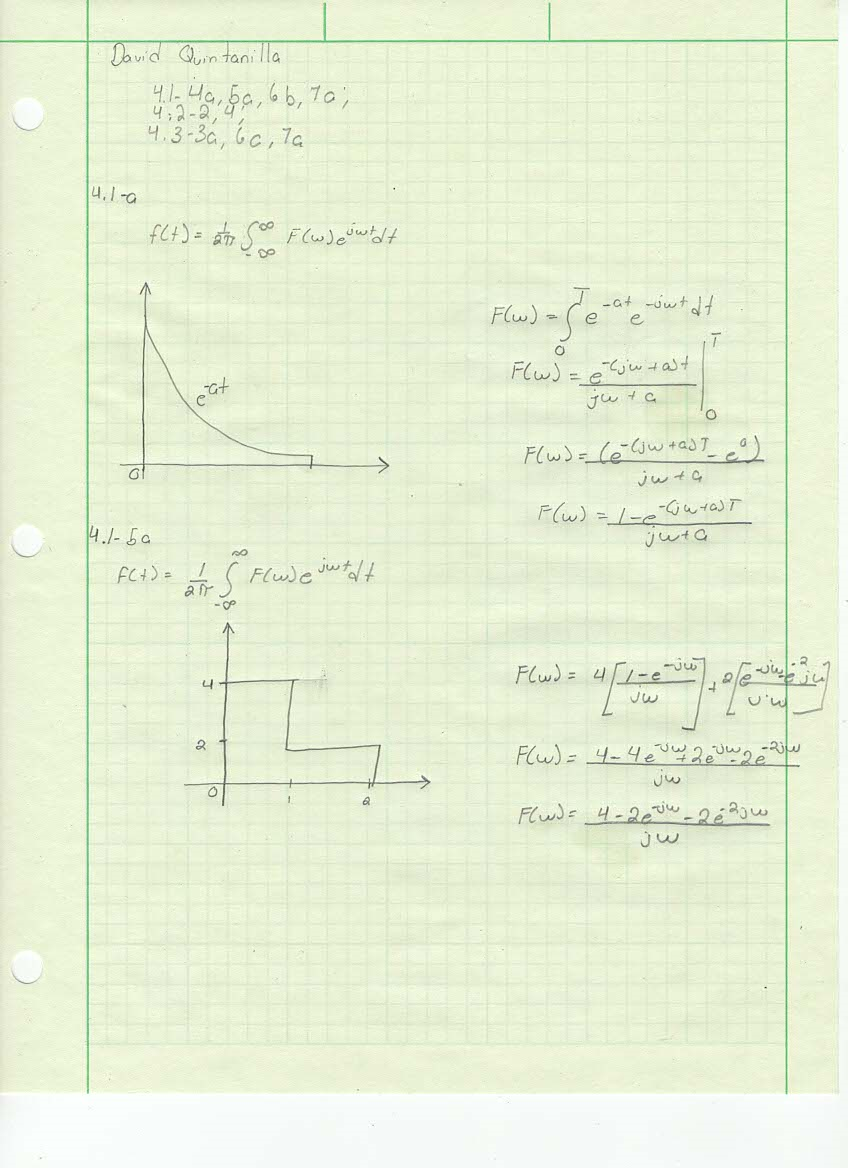 David Quintanilla
4.1-4a, 5a, 6b, 7a;
4.2-2, 4,
4.3-3a, 6a, 7a
4.1-a
f(t) = 1/2π ∫_{-∞}^{∞} F(ω) e^{jωt} dt
e^{-at}
0
F(ω) = ∫_0^T e^{-at} e^{-jωt} dt
F(ω) = e^{-(jω+a)t} / (jω+a) |_0^T
F(ω) = (e^{-(jω+a)T} - e^0) / (jω+a)
F(ω) = (1-e^{-(jω+a)T}) / (jω+a)
4.1-5a
f(t) = 1/2π ∫_{-∞}^{∞} F(ω) e^{jωt} dt
4
2
0 1 2
F(ω) = 4[(1-e^{-jω}) / jω] + 2[(e^{-jω} - e^{-2jω}) / jω]
F(ω) = (4-4e^{-jω}+2e^{-jω}-2e^{-2jω}) / jω
F(ω) = (4-2e^{-jω}-2e^{-2jω}) / jω